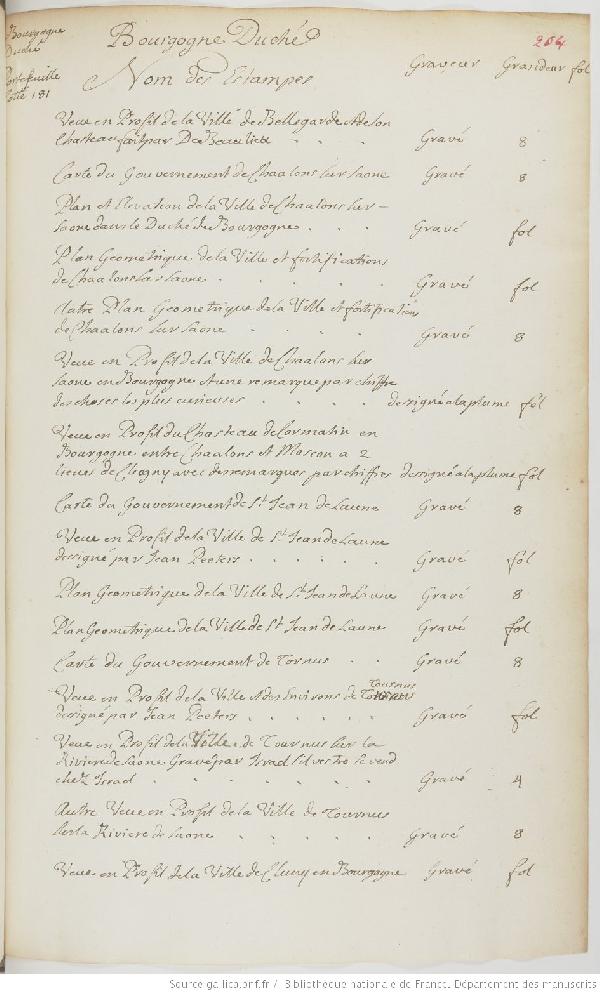 Bourgogne
Duché
Portefeuille
Cotté 181
Bourgogne Duché
264
Nom des Estampes
Graveur Grandeur fol
Veue en Profil de la Ville de Bellegarde et de son
Chasteau fait par De Beaulieu . . . Gravé 8
Carte du Gouvernement de Chaalons sur Saone Gravé 8
Plan et Elevation de la Ville de Chaalons sur -
Saone dans le Duché de Bourgogne . . . Gravé fol
Plan Geometrique de la Ville et fortifications
de Chaalons sur Saone . . . . Gravé fol
Autre Plan Geometrique de la Ville et fortification
de Chaalons sur Saone . . . . Gravé 8
Veue en Profil de la Ville de Chaalons sur
Saone en Bourgogne et une remarque par chiffre
des choses les plus curieuses . . . . designé a la plume fol
Veue en Profil du Chasteau de Cormatin en
Bourgogne entre Chaalons et Mascon a 2
lieues de Clugny avec des remarques par chiffres designé a la plume fol
Carte du Gouvernement de St. Jean de Laune Gravé 8
Veue en Profil de la Ville de St Jean de Laune
dessigné par Jean Peeters . . . . . Gravé fol
Plan Geometrique de la Ville de St. Jean de Laune Gravé 8
Plan Geometrique de la Ville de St Jean de Laune Gravé fol
Carte du Gouvernement de Tornus . . Gravé 8
Veue en Profil de la Ville et des Environs de Tournus
dessigné par Jean Peeters . . . . . . Gravé fol
Veue en Profil de la Ville de Tournus sur la
Riviere de Saone Gravé par Israel Silvestre se vend
chez Israel . . . . . . . Gravé 4
Autre Veue en Profil de la Ville de Tournus
sur la Riviere de Saone . . . . Gravé 8
Veue en Profil de la Ville de Cluny en Bourgogne Gravé fol
Source gallica.bnf.fr / Bibliothèque nationale de France. Département des manuscrits